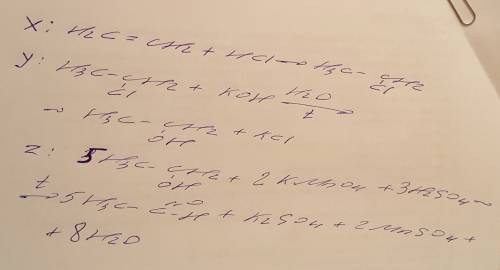 x: H₂C = CH₂ + HCl → H₃C - CH₂
Cl
y: H₃C - CH₂ + KOH H₂O
Cl t
→ H₃C - CH₂ + KCl
OH
z: 5H₃C - CH₂ + 2KMnO₄ + 3H₂SO₄ →
OH
t
→ 5H₃C - C - H + K₂SO₄ + 2MnSO₄ +
O
+ 8H₂O